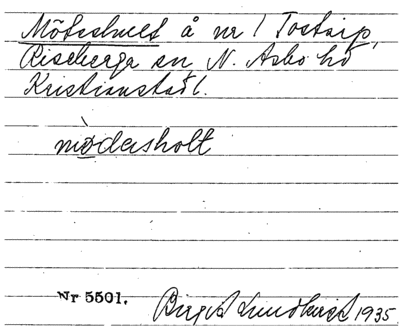 Mötershult å nr 1 Tostarp,
Riseberga sn N. Asbo hd
Kristianstad l.
mǫ̀dersholt
Nr 5501. Birgit Lundberg 1935